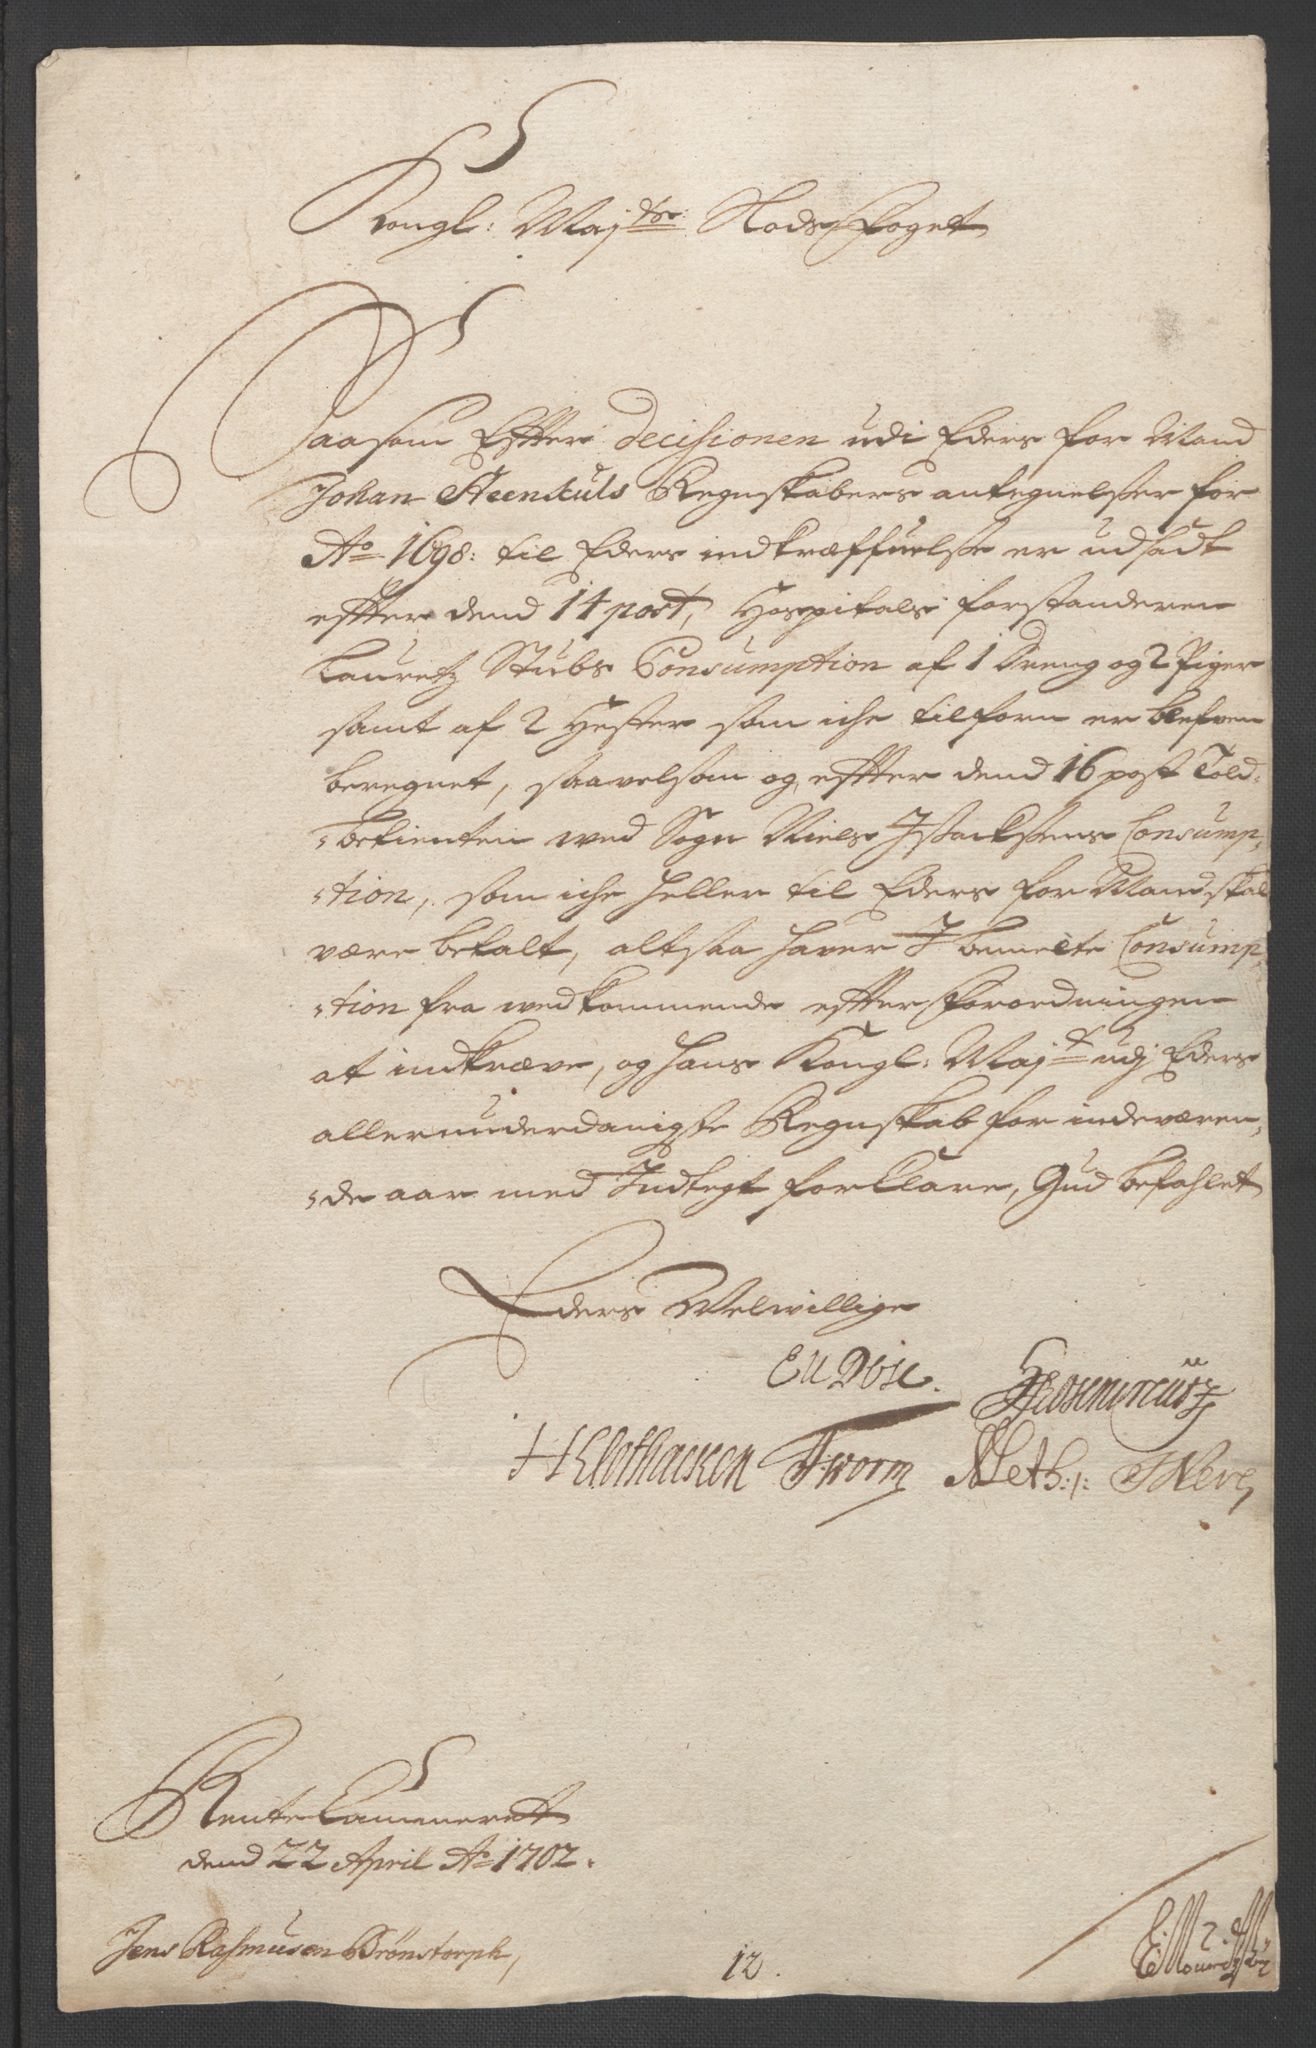 Kongl: Maj:ttz: Slods Foget
Saasom Effter Decisionen udi Eders for Mand
Johan Steenkuls Regnskabers antegnelsser for
Ao 1698: til Eders indkræffuelsse er udsadt
effter dend 14 post, Hospitals forstanderen
Lauretz Stubs Consumption af 1 Dreng og 2 Piger
samt af 2 Hester som iche tilforn er blefven
beregnet, saavelsom og effter dend 16 post Told-
betienten wed Sogn Niels Jssachsens Consump-
tion, som iche heller til Eders for Mand skal
være betalt, altsaa hauer I bemelte Consump-
tion fra wedkommende effter Forordningen
at indkræve, og hans Kongl: Maj:t udj Eders
allerunderdanigste Regnskab for indeværen-
de aar med Indtegt forklare, Gud befahlet
Eders Velwillige
H Slothacken T Worm A Meth:/:
Rente Cammeret
dend 22 April Ao 1702.
Jens Rasmusen Brönstorph,
12.